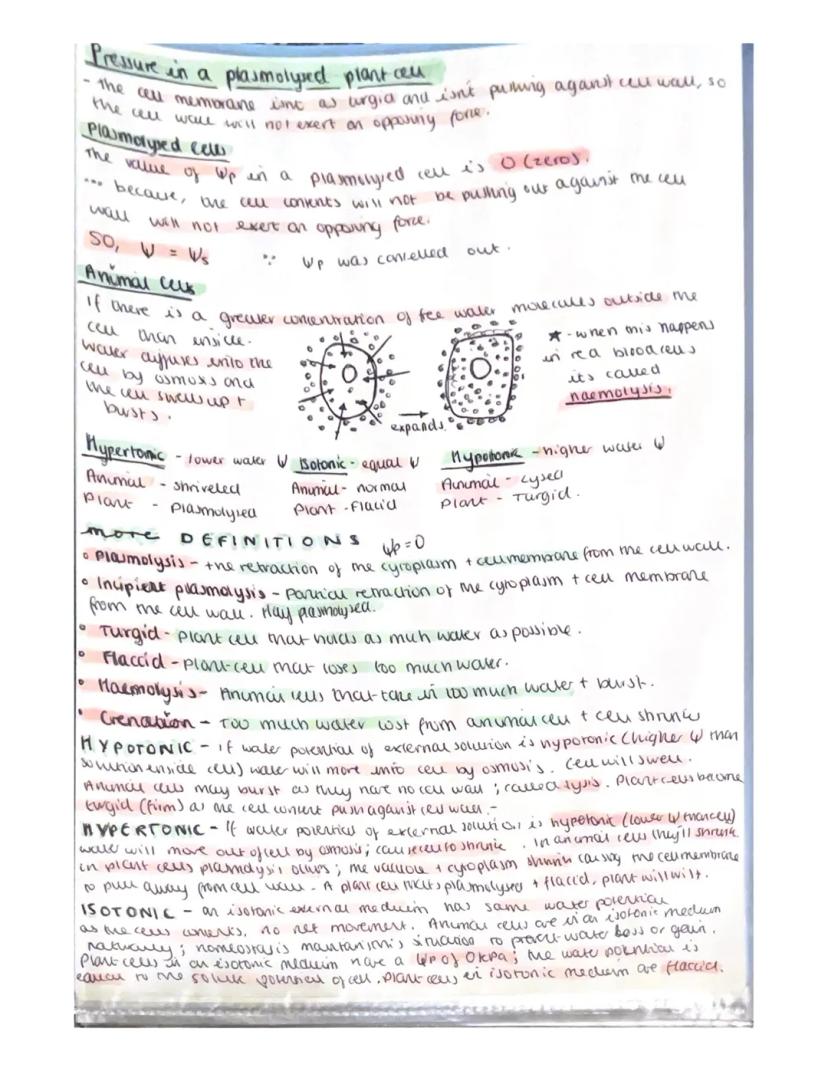 Pressure in a plasmolysed plant cell
- the cell membrane isnt as turgid and isn't pushing against cell wall, so
the cell wall will not exert an opposing force.
Plasmolysed Cells
The value of Ψp in a plasmolysed cell is 0 (zero).
... because, the cell contents will not be pushing out against the cell
wall will not exert an opposing force.
SO, Ψ = Ψs ∵ Ψp was cancelled out.
Animal Cells
If there is a greater concentration of fee water molecules outside the
cell than inside.
water diffuses into the
cell by osmosis and
the cell swells up +
bursts.
expands
★ - when this happens
in red blood cells
its called
haemolysis.
Hypertonic - lower water Ψ
Animal - shriveled
Plant - Plasmolysed
Isotonic - equal Ψ
Animal - normal
Plant - Flacid
Hypotonic - higher water Ψ
Animal - Lysed
Plant - Turgid.
more DEFINITIONS Ψp=0
• Plasmolysis - the retraction of the cytoplasm + cell membrane from the cell wall.
• Incipient plasmolysis - partial retraction of the cytoplasm + cell membrane
from the cell wall. Half plasmolysed.
• Turgid - plant cell that holds as much water as possible.
• Flaccid - plant cell that loses too much water.
• Haemolysis - Animal cells that take in too much water + burst.
• Crenation - Too much water lost from animal cell + cell shrinks
HYPOTONIC - if water potential of external solution is hypotonic (higher Ψ than
solution inside cell) water will move into cell by osmosis. Cell will swell.
Animal cells may burst as they have no cell wall ; called lysis. Plant cells become
turgid (firm) as the cell content push against cell wall. -
HYPERTONIC - If water potential of external solution is hypetonic (lower Ψ than cell)
water will move out of cell by osmosis; cause cell to shrink. In animal cells they'll shrink
in plant cells plasmolysis occurs; the vacuole + cytoplasm shrink causing the cell membrane
to pull away from cell wall. A plant cell that's plasmolysed + flaccid, plant will wilt.
ISOTONIC - an isotonic external medium has same water potential
as the cells contents, no net movement. Animal cells are in an isotonic medium
naturally; homeostasis maintain this situation to prevent water loss or gain.
Plant cells in an isotonic medium have a Ψp of 0kPa; the water potential is
equal to the solute potential of cell. Plant cells in isotonic medium are flaccid.